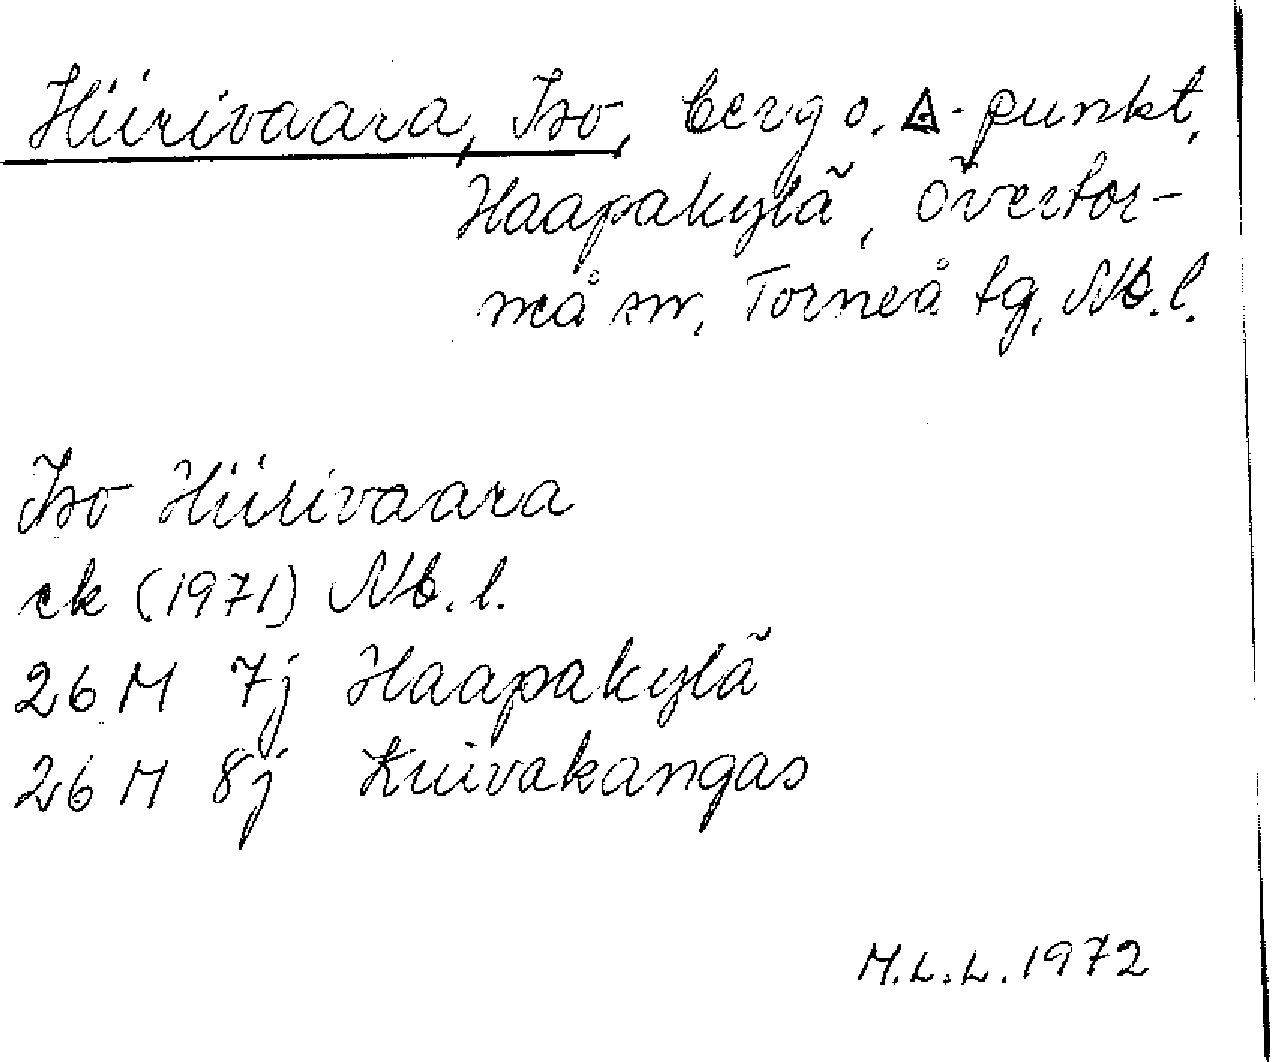 Hiirivaara, Iso, berg o. △-punkt,
Haapakylä, Övertor-
neå sn, Torneå tg, Nb. l.
Iso Hiirivaara
ek (1971) Nb. l.
26 M 7j Haapakylä
26 M 8j Kuivakangas
M.L.L. 1972